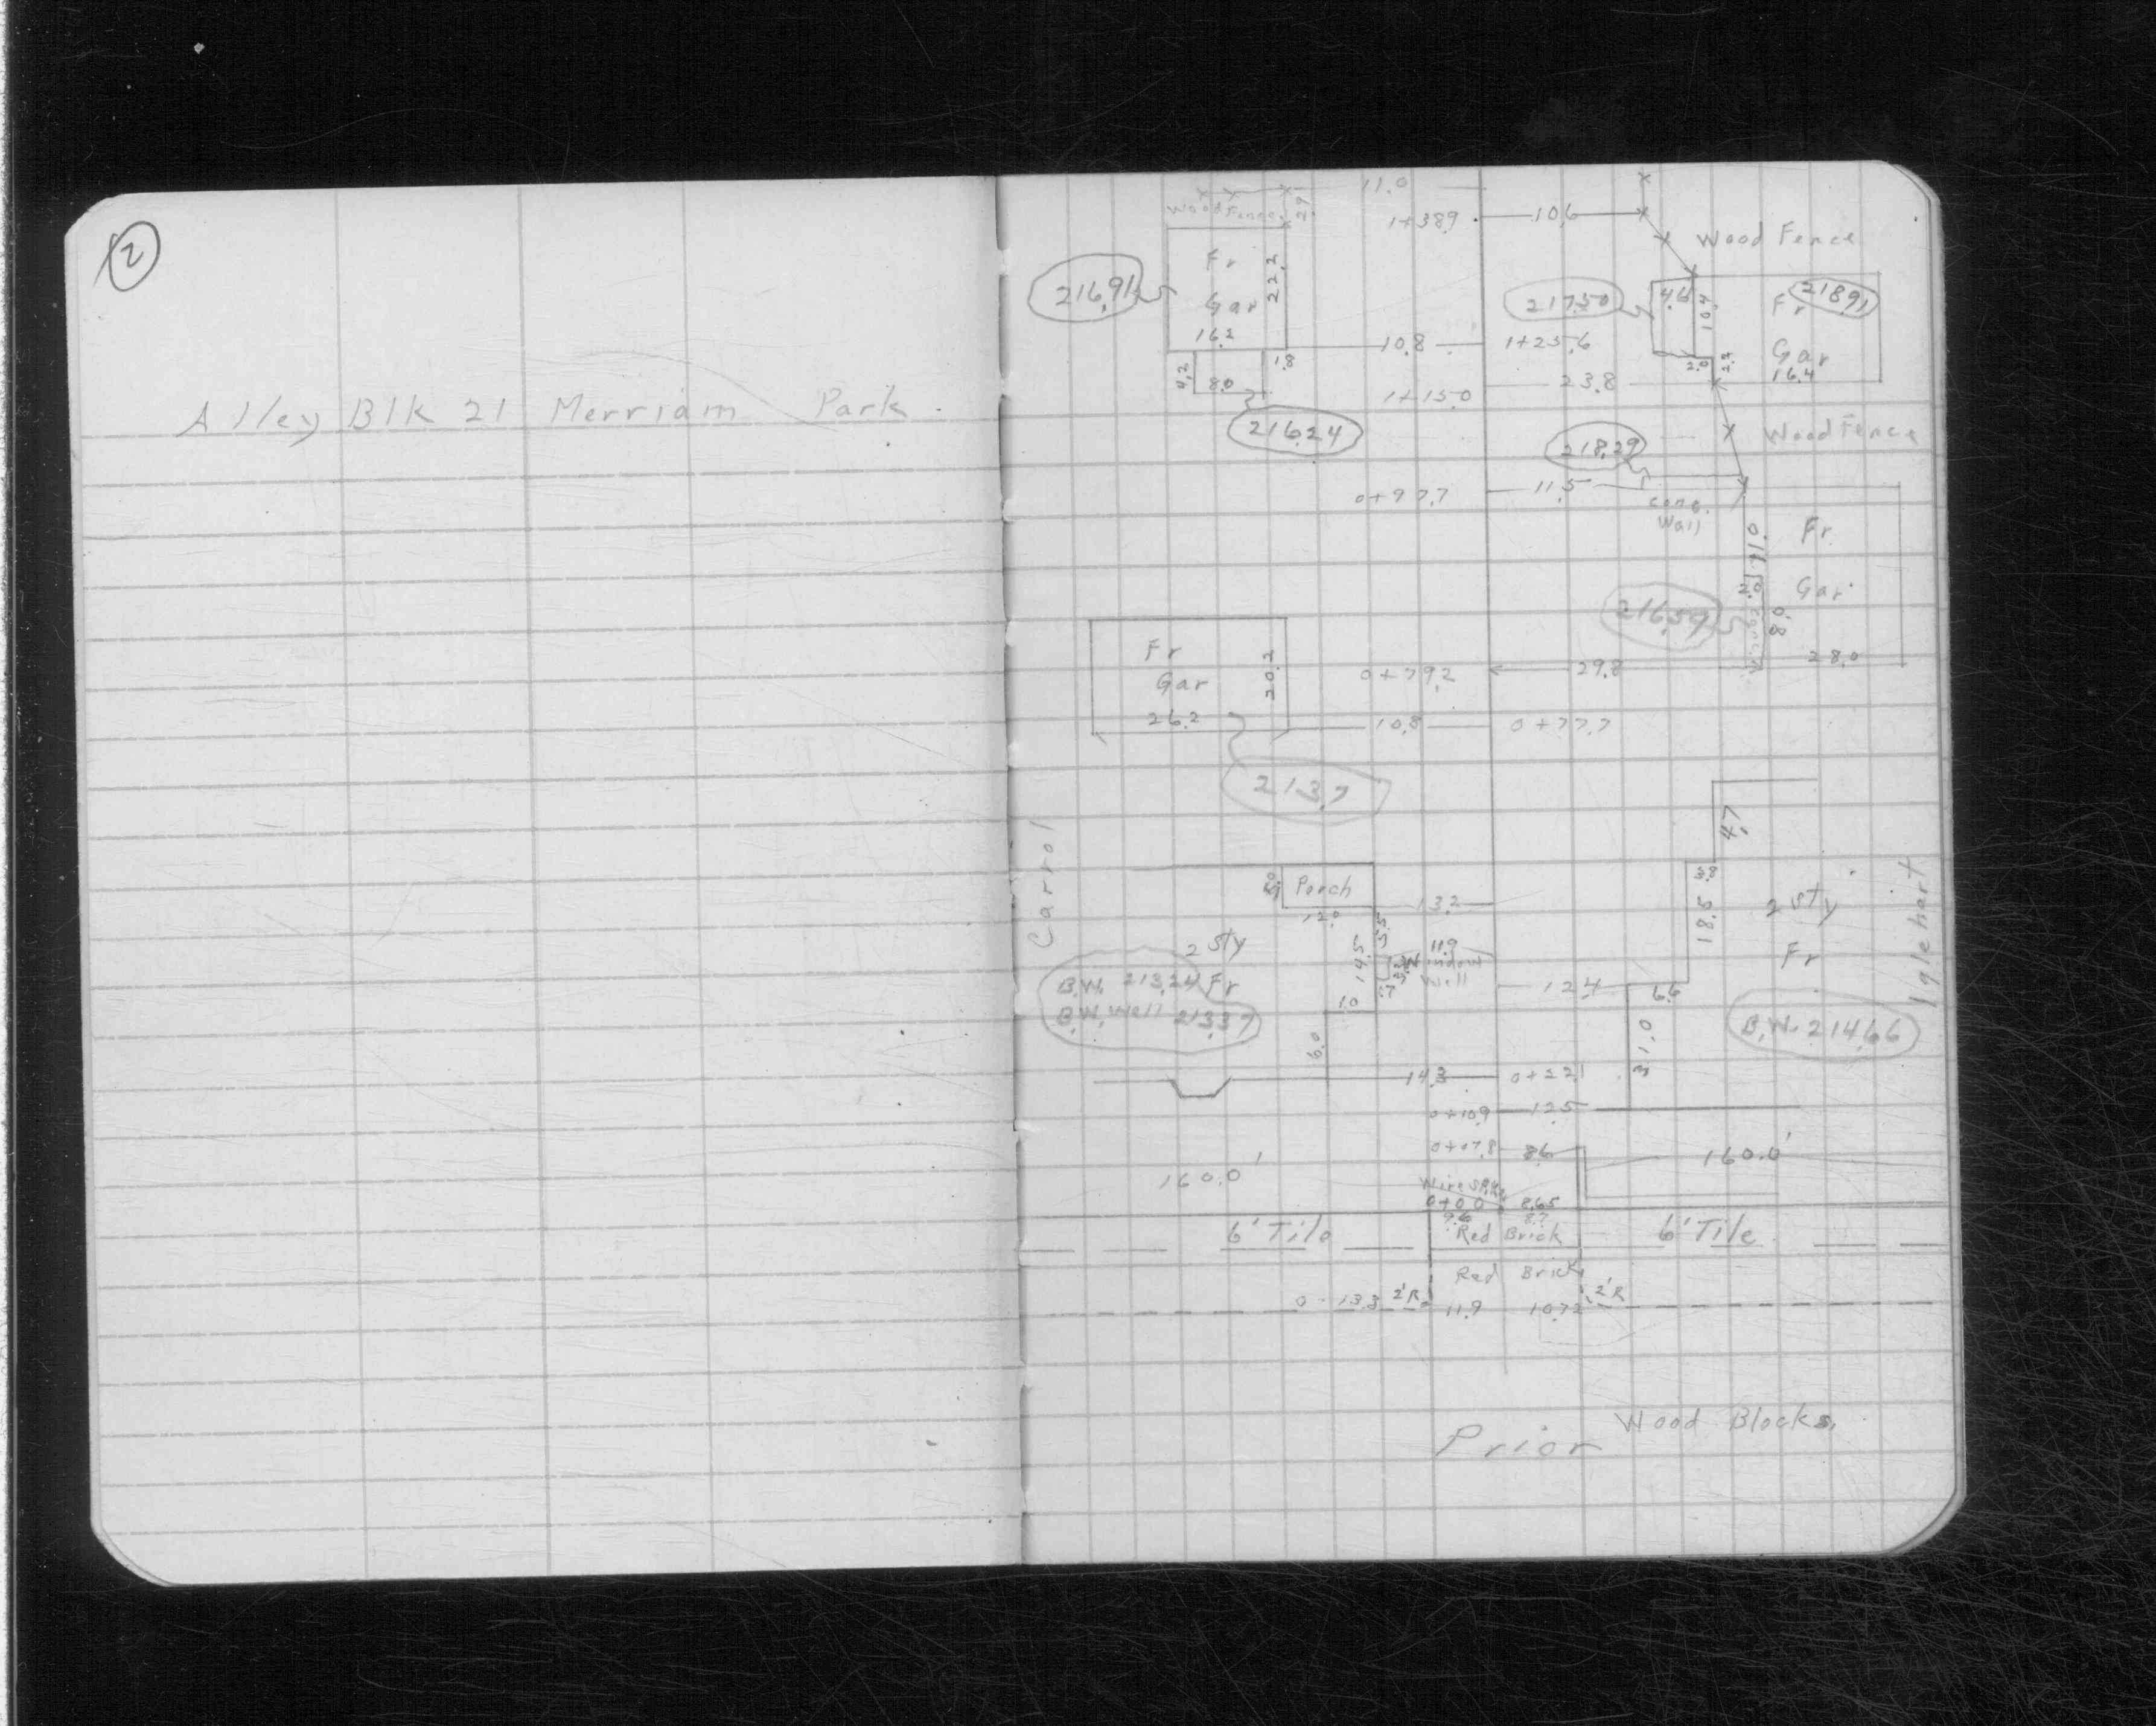 2
Alley Blk 21 Merriam Park.
11.0
Wood Fence
2.9
1+38.9
10.6
Wood Fence
216.91
Fr
Gar
16.2
22.2
217.50
4.6
10.4
Fr
218.91
Gar
16.4
10.8
1+25.6
1.8
2.0
2.2
4.2
8.0
1+15.0
23.8
216.24
218.29
Wood Fence
0+97.7
11.5
conc.
Wall
11.0
Fr.
Gar.
28.0
2.0
8.0
216.59
Fr
Gar
26.2
20.2
0+79.2
29.8
10.8
0+77.7
213.7
Carrol
4.7
3.8
18.5
2 Sty
Fr
Iglehart
Porch
12.0
13.2
5.5
2 Sty
Fr
14.5
11.9
Window
Well
B.W. 213.24
B.W. Well 213.37
1.0
12.4
6.6
B.W. 214.66
6.0
31.0
14.3
0+22.1
0+10.9
12.5
0+07.8
8.6
160.0'
160.0'
Wire Spike
0+00
8.65
9.6
8.7
6' Tile
Red Brick
6' Tile
Red Brick
0-13.3
2'R.
11.9
10.72
2'R
Prior
Wood Blocks.